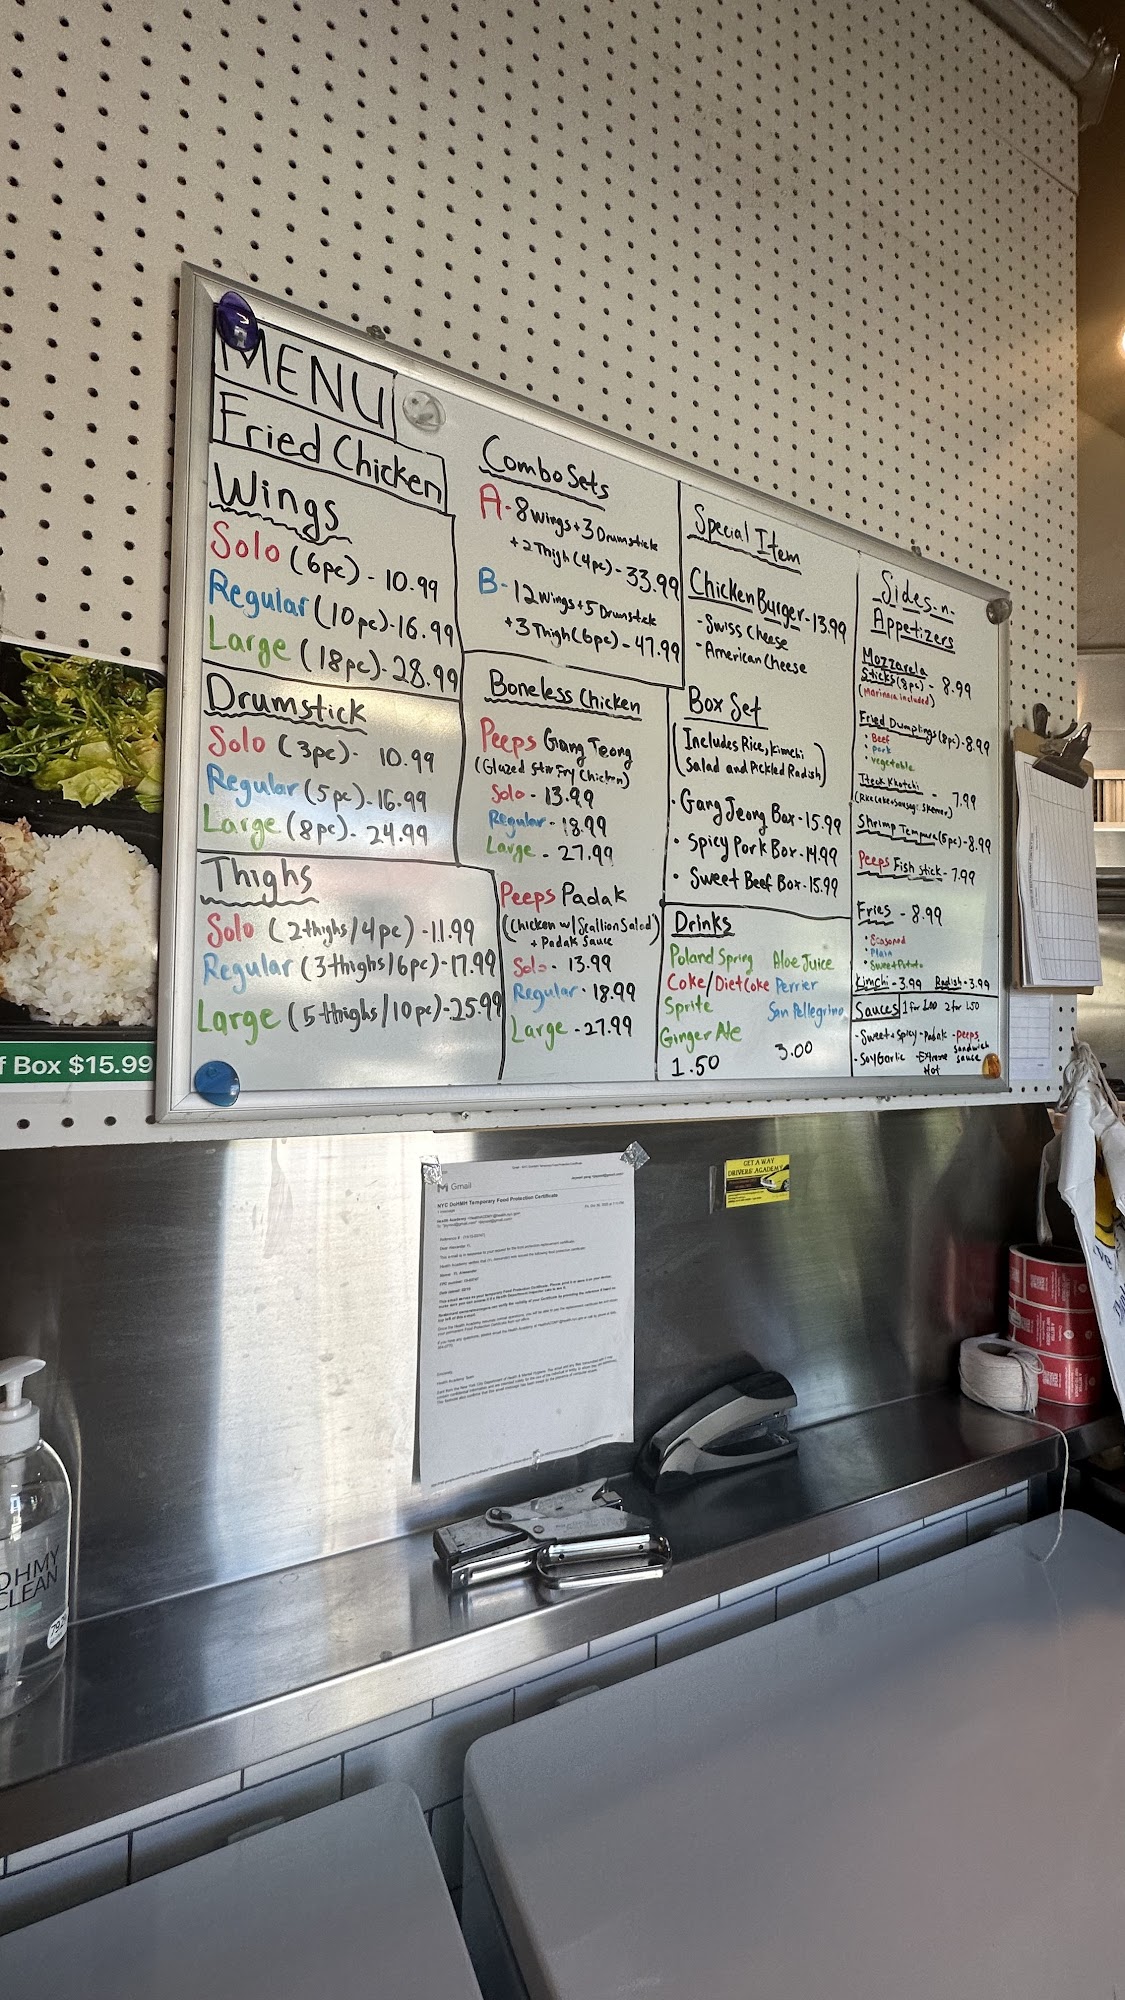 MENU
Fried Chicken
Wings
Solo (6pc) - 10.99
Regular (10pc) - 16.99
Large (18pc) - 28.99
Drumstick
Solo (3pc) - 10.99
Regular (5pc) - 16.99
Large (8pc) - 24.99
Thighs
Solo (2 thighs/4pc) - 11.99
Regular (3 thighs/6pc) - 17.99
Large (5 thighs/10pc) - 25.99
Combo Sets
A - 8 wings + 3 Drumstick
+ 2 Thigh (4pc) - 33.99
B - 12 wings + 5 Drumstick
+ 3 Thigh (6pc) - 47.99
Boneless Chicken
Peeps Gang Jeong
(Glazed Stir Fry Chicken)
Solo - 13.99
Regular - 18.99
Large - 27.99
Peeps Padak
(Chicken w/ Scallion Salad
+ Padak Sauce
Solo - 13.99
Regular - 18.99
Large - 27.99
Special Item
Chicken Burger - 13.99
- Swiss Cheese
- American Cheese
Box Set
(Includes Rice, Kimchi
Salad and Pickled Radish)
• Gang Jeong Box - 15.99
• Spicy Pork Box - 14.99
• Sweet Beef Box - 15.99
Drinks
Poland Spring
Coke/Diet Coke
Sprite
Ginger Ale
1.50
Aloe Juice
Perrier
San Pellegrino
3.00
Sides-n-
Appetizers
Mozzarela
Sticks (8pc) - 8.99
(Marinnia included)
Fried Dumplings (8pc) - 8.99
• Beef
• Pork
• Vegetable
- 7.99
Shrimp Tempura (5pc) - 8.99
Peeps Fish Stick - 7.99
Fries - 8.99
• Seasoned
• Plain
• Sweet Potato
Kimchi - 3.99 Radish - 3.99
Sauces 1 for 1.00 2 for 1.50
- Sweet + Spicy - Padak - Peeps
sandwich
sauce
- Soy Garlic - Extreme
Hot
f Box $15.99
Gmail
NYC DoHMH Temporary Food Protection Certificate
GET A WAY
DRIVERS' ACADEMY
OHMY
CLEAN